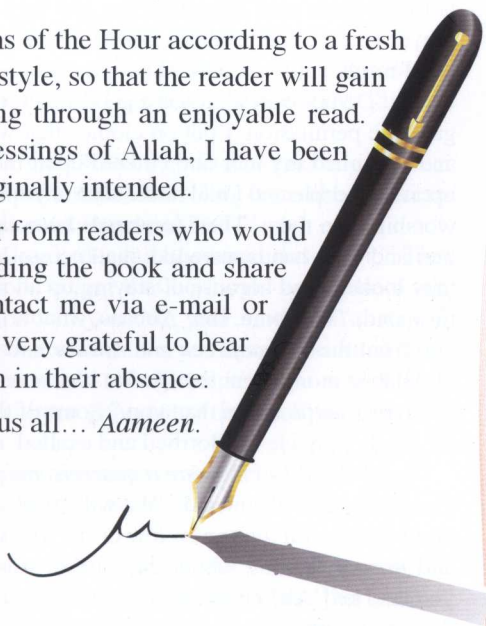 ns of the Hour according to a fresh
style, so that the reader will gain
ng through an enjoyable read.
essings of Allah, I have been
ginally intended.
r from readers who would
ding the book and share
ntact me via e-mail or
very grateful to hear
n in their absence.
us all… Aameen.